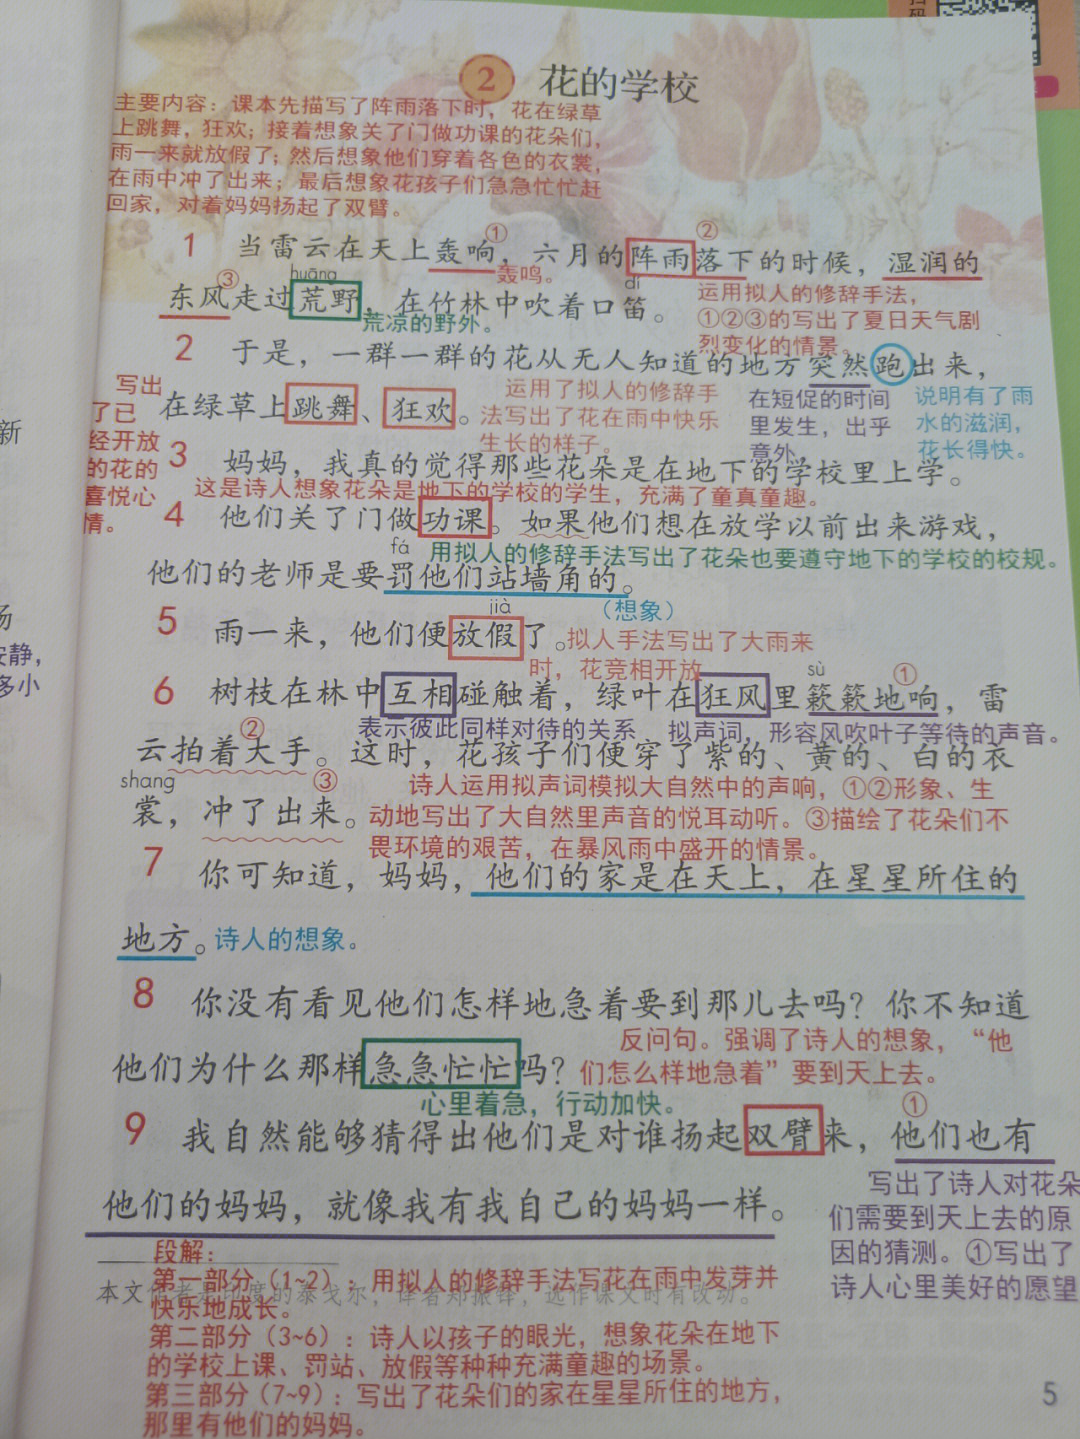 扫码
2 花的学校
主要内容：课本先描写了阵雨落下时，花在绿草
上跳舞，狂欢；接着想象关了门做功课的花朵们，
雨一来就放假了；然后想象他们穿着各色的衣裳，
在雨中冲了出来；最后想象花孩子们急急忙忙赶
回家，对着妈妈扬起了双臂。
① ②
1 当雷云在天上轰响，六月的阵雨落下的时候，湿润的
轰鸣。
③ huāng dí
东风走过荒野，在竹林中吹着口笛。
荒凉的野外。
运用拟人的修辞手法，
①②③的写出了夏日天气剧
烈变化的情景。
2 于是，一群一群的花从无人知道的地方突然跑出来，
在绿草上跳舞、狂欢。
写出
了已
经开放
的花的
喜悦心
情。
运用了拟人的修辞手
法写出了花在雨中快乐
生长的样子。
在短促的时间
里发生，出乎
意外。
说明有了雨
水的滋润，
花长得快。
3 妈妈，我真的觉得那些花朵是在地下的学校里上学。
这是诗人想象花朵是地下的学校的学生，充满了童真童趣。
4 他们关了门做功课。如果他们想在放学以前出来游戏，
fá 用拟人的修辞手法写出了花朵也要遵守地下的学校的校规。
他们的老师是要罚他们站墙角的。
（想象）
jià
5 雨一来，他们便放假了。拟人手法写出了大雨来
时，花竞相开放
sù ①
6 树枝在林中互相碰触着，绿叶在狂风里簌簌地响，雷
② 表示彼此同样对待的关系 拟声词，形容风吹叶子等待的声音。
云拍着大手。这时，花孩子们便穿了紫的、黄的、白的衣
shang ③ 诗人运用拟声词模拟大自然中的声响，①②形象、生
裳，冲了出来。动地写出了大自然里声音的悦耳动听。③描绘了花朵们不
畏环境的艰苦，在暴风雨中盛开的情景。
7 你可知道，妈妈，他们的家是在天上，在星星所住的
地方。诗人的想象。
8 你没有看见他们怎样地急着要到那儿去吗？你不知道
反问句。强调了诗人的想象，“他
他们为什么那样急急忙忙吗？们怎么样地急着”要到天上去。
心里着急，行动加快。 ①
9 我自然能够猜得出他们是对谁扬起双臂来，他们也有
他们的妈妈，就像我有我自己的妈妈一样。
写出了诗人对花朵
们需要到天上去的原
因的猜测。①写出了
诗人心里美好的愿望
段解：
第一部分（1~2）：用拟人的修辞手法写花在雨中发芽并
本文作者是印度的泰戈尔，译者郑振铎，选作课文时有改动。
快乐地成长。
第二部分（3~6）：诗人以孩子的眼光，想象花朵在地下
的学校上课、罚站、放假等种种充满童趣的场景。
第三部分（7~9）：写出了花朵们的家在星星所住的地方，
那里有他们的妈妈。
5
新
安静，
多小